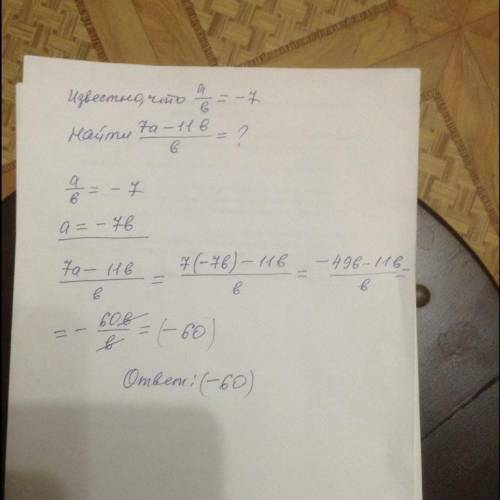 Известно, что a/в = -7
Найти 7a-11в/в = ?
a/в = -7
a = -7в
7a-11в/в = 7(-7в)-11в/в = -49в-11в/в =
= - 60в/в = (-60)
Ответ: (-60)